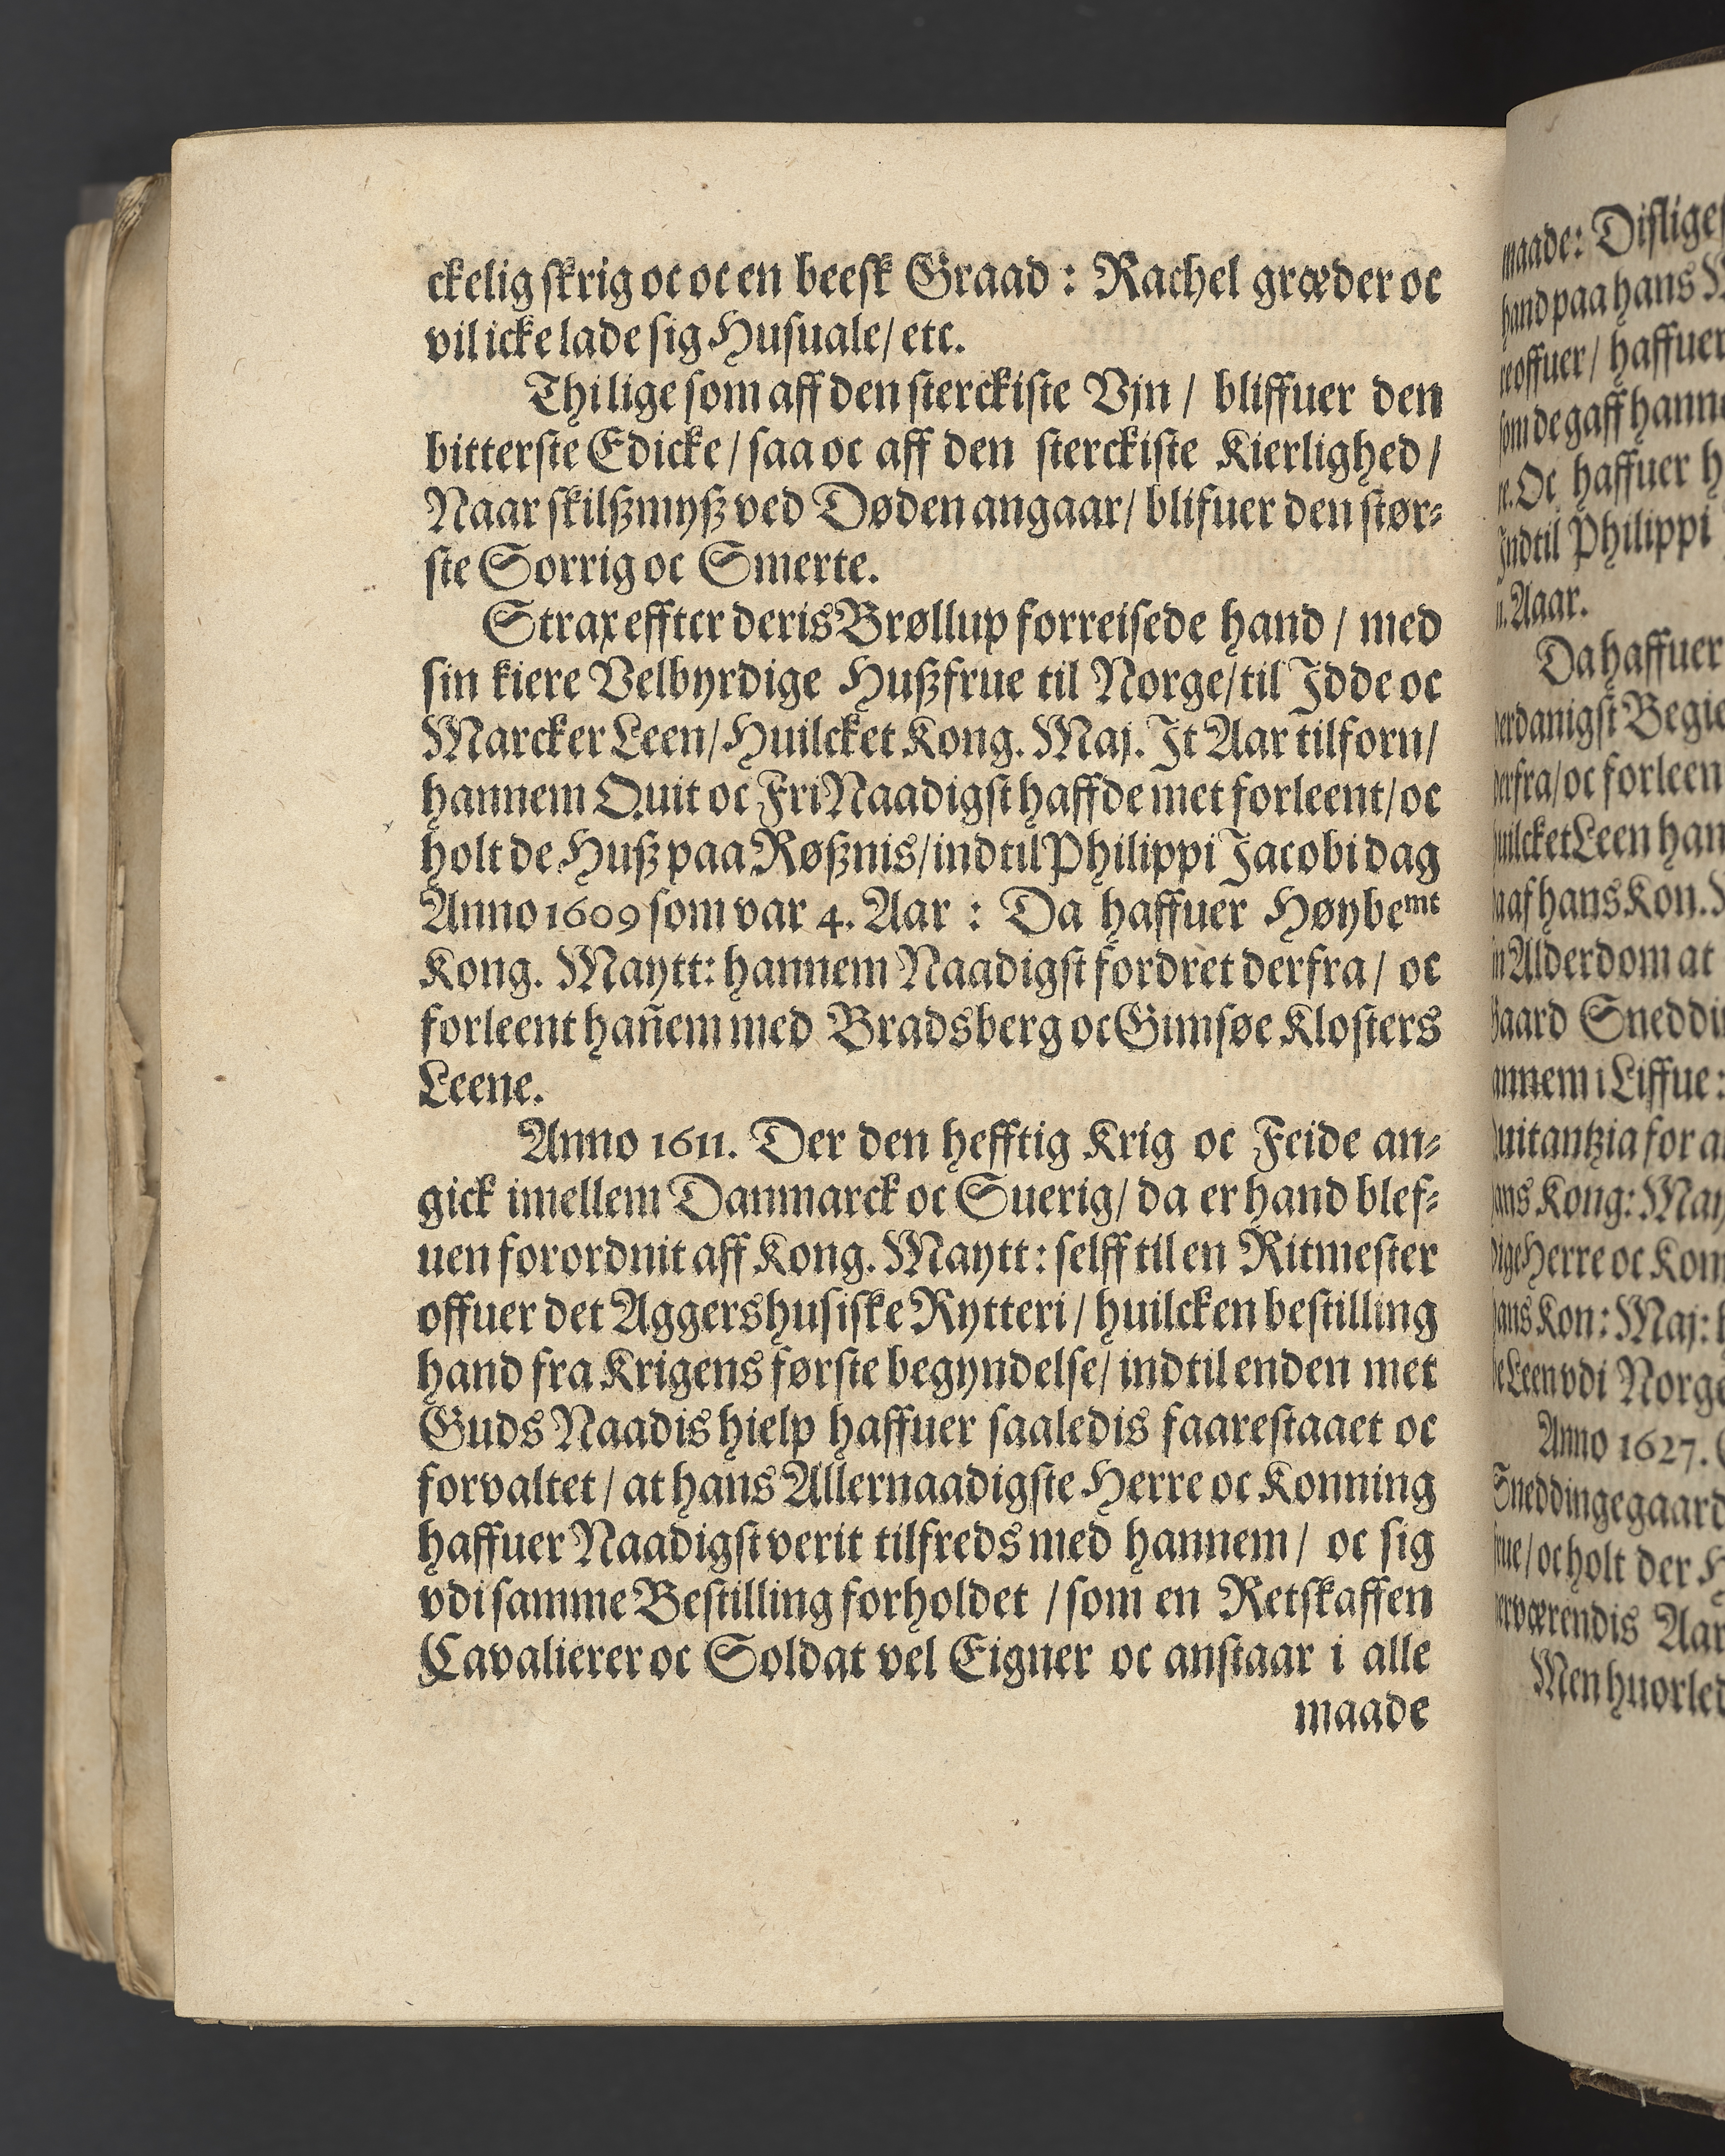 ckelig skrig oc oc en beesk Graad : Rachel græder oc
vil icke lade sig Husuale/ etc.
Thi lige som aff den sterckiste Vjn / bliffuer den
bitterste Edicke / saa oc aff den sterckiste Kierlighed /
Naar skilßmyß ved Døden angaar/ blifuer den stør-
ste Sorrig oc Smerte.
Strax effter deris Brøllup forreisede hand / med
sin kiere Velbyrdige Hußfrue til Norge/ til Jdde oc
Marcker Leen/ Huilcket Kong. Maj. Jt Aar tilforn/
hannem Quit oc Fri Naadigst haffde met forleent/ oc
holt de Huß paa Røßnis/ indtil Philippi Jacobi dag
Anno 1609 som var 4. Aar : Da haffuer Høybemt
Kong. Maytt: hannem Naadigst fordret derfra / oc
forleent hañem med Bradsberg oc Gimsøe Klosters
Leene.
Anno 1611. Der den hefftig Krig oc Feide an-
gick imellem Danmarck oc Suerig/ da er hand blef-
uen forordnit aff Kong. Maytt: selff til en Ritmester
offuer det Aggershusiske Rytteri / huilcken bestilling
hand fra Krigens første begyndelse/ indtil enden met
Guds Naadis hielp haffuer saaledis faarestaaet oc
forvaltet / at hans Allernaadigste Herre oc Konning
haffuer Naadigst verit tilfreds med hannem / oc sig
vdi samme Bestilling forholdet / som en Retskaffen
Cavalierer oc Soldat vel Eigner oc anstaar i alle
maade
maade: Disliges
hand paa hans
offuer / haffuer
som de gaff hann
Oc haffuer
Indtil Philippi
Aar.
Da haffuer
danigst Begie
derfra/ oc forleen
huilcket Leen han
af hans Kon.
Alderdom at
Gaard Sneddi
annem i Liffue :
Quitantzia for
hans Kong: May
Herre oc Kon
hans Kon: Maj:
Leen vdi Norge
Anno 1627.
Sneddingegaard
frue / oc holt der
værendis Aar
Men huorled